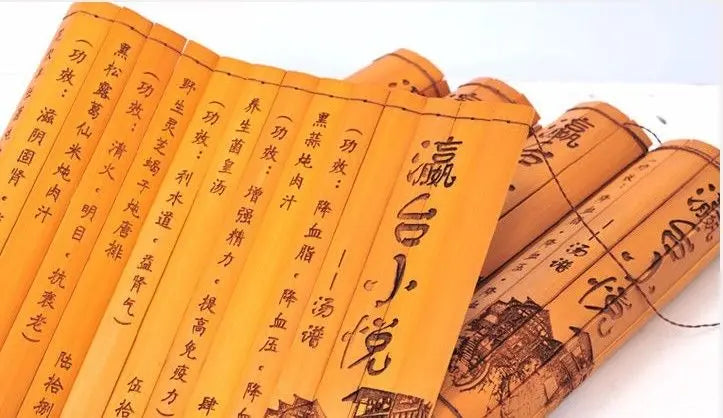 瀛台小悦
——汤谱
黑蒜炖肉汁
（功效：降血脂，降血压，降血
养生菌皇汤 肆
（功效：增强精力，提高免疫力）
野生灵芝蝎子炖唐排 伍拾
（功效：利水道，益肾气）
黑松露葛仙米炖肉汁 陆拾捌
（功效：清火，明目，抗衰老）
（功效：滋阴固肾，
瀛
瀛台小悦
——汤谱